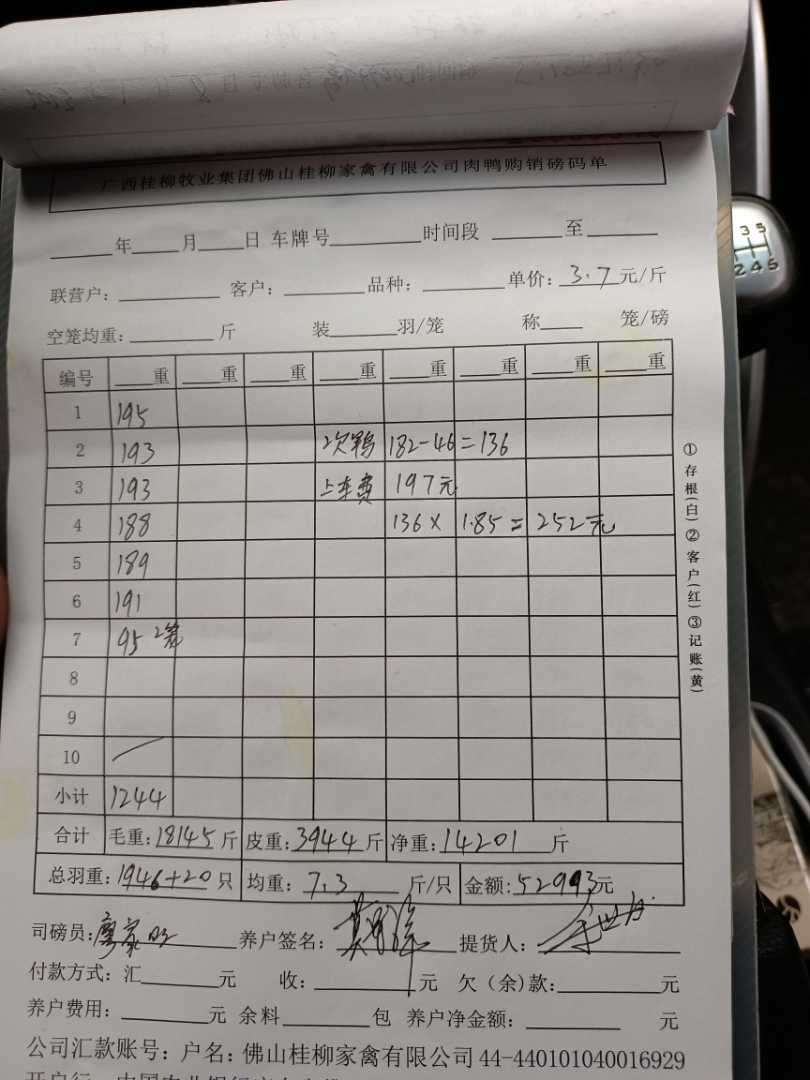 广西桂柳牧业集团佛山桂柳家禽有限公司肉鸭购销磅码单
____年____月____日 车牌号______时间段 ____至____
联营户：______ 客户：______品种：______单价：3.7元/斤
空笼均重：______斤 装____羽/笼 称____笼/磅
编号 ____重 ____重 ____重 ____重 ____重 ____重 ____重 ____重
1 195
2 193 次鸭 182-46=136
3 193 上车费 197元
4 188 136×1.85=252元
5 189
6 191
7 95 2笼
8
9
10
小计 1244
合计 毛重：18145斤 皮重：3944斤 净重：14201斤
总羽重：1946+20只 均重：7.3斤/只 金额：52993元
司磅员：廖家 养户签名： 提货人：
付款方式：汇______元 收：______元 欠（余）款：______元
养户费用：______元 余料______包 养户净金额：______元
公司汇款账号：户名：佛山桂柳家禽有限公司 44-440101040016929
①存根(白)②客户(红)③记账(黄)
3 5
2 4 6